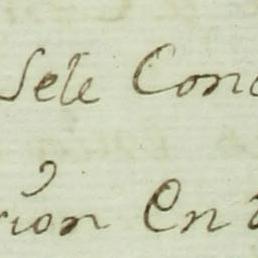 Sele Conc
rion En